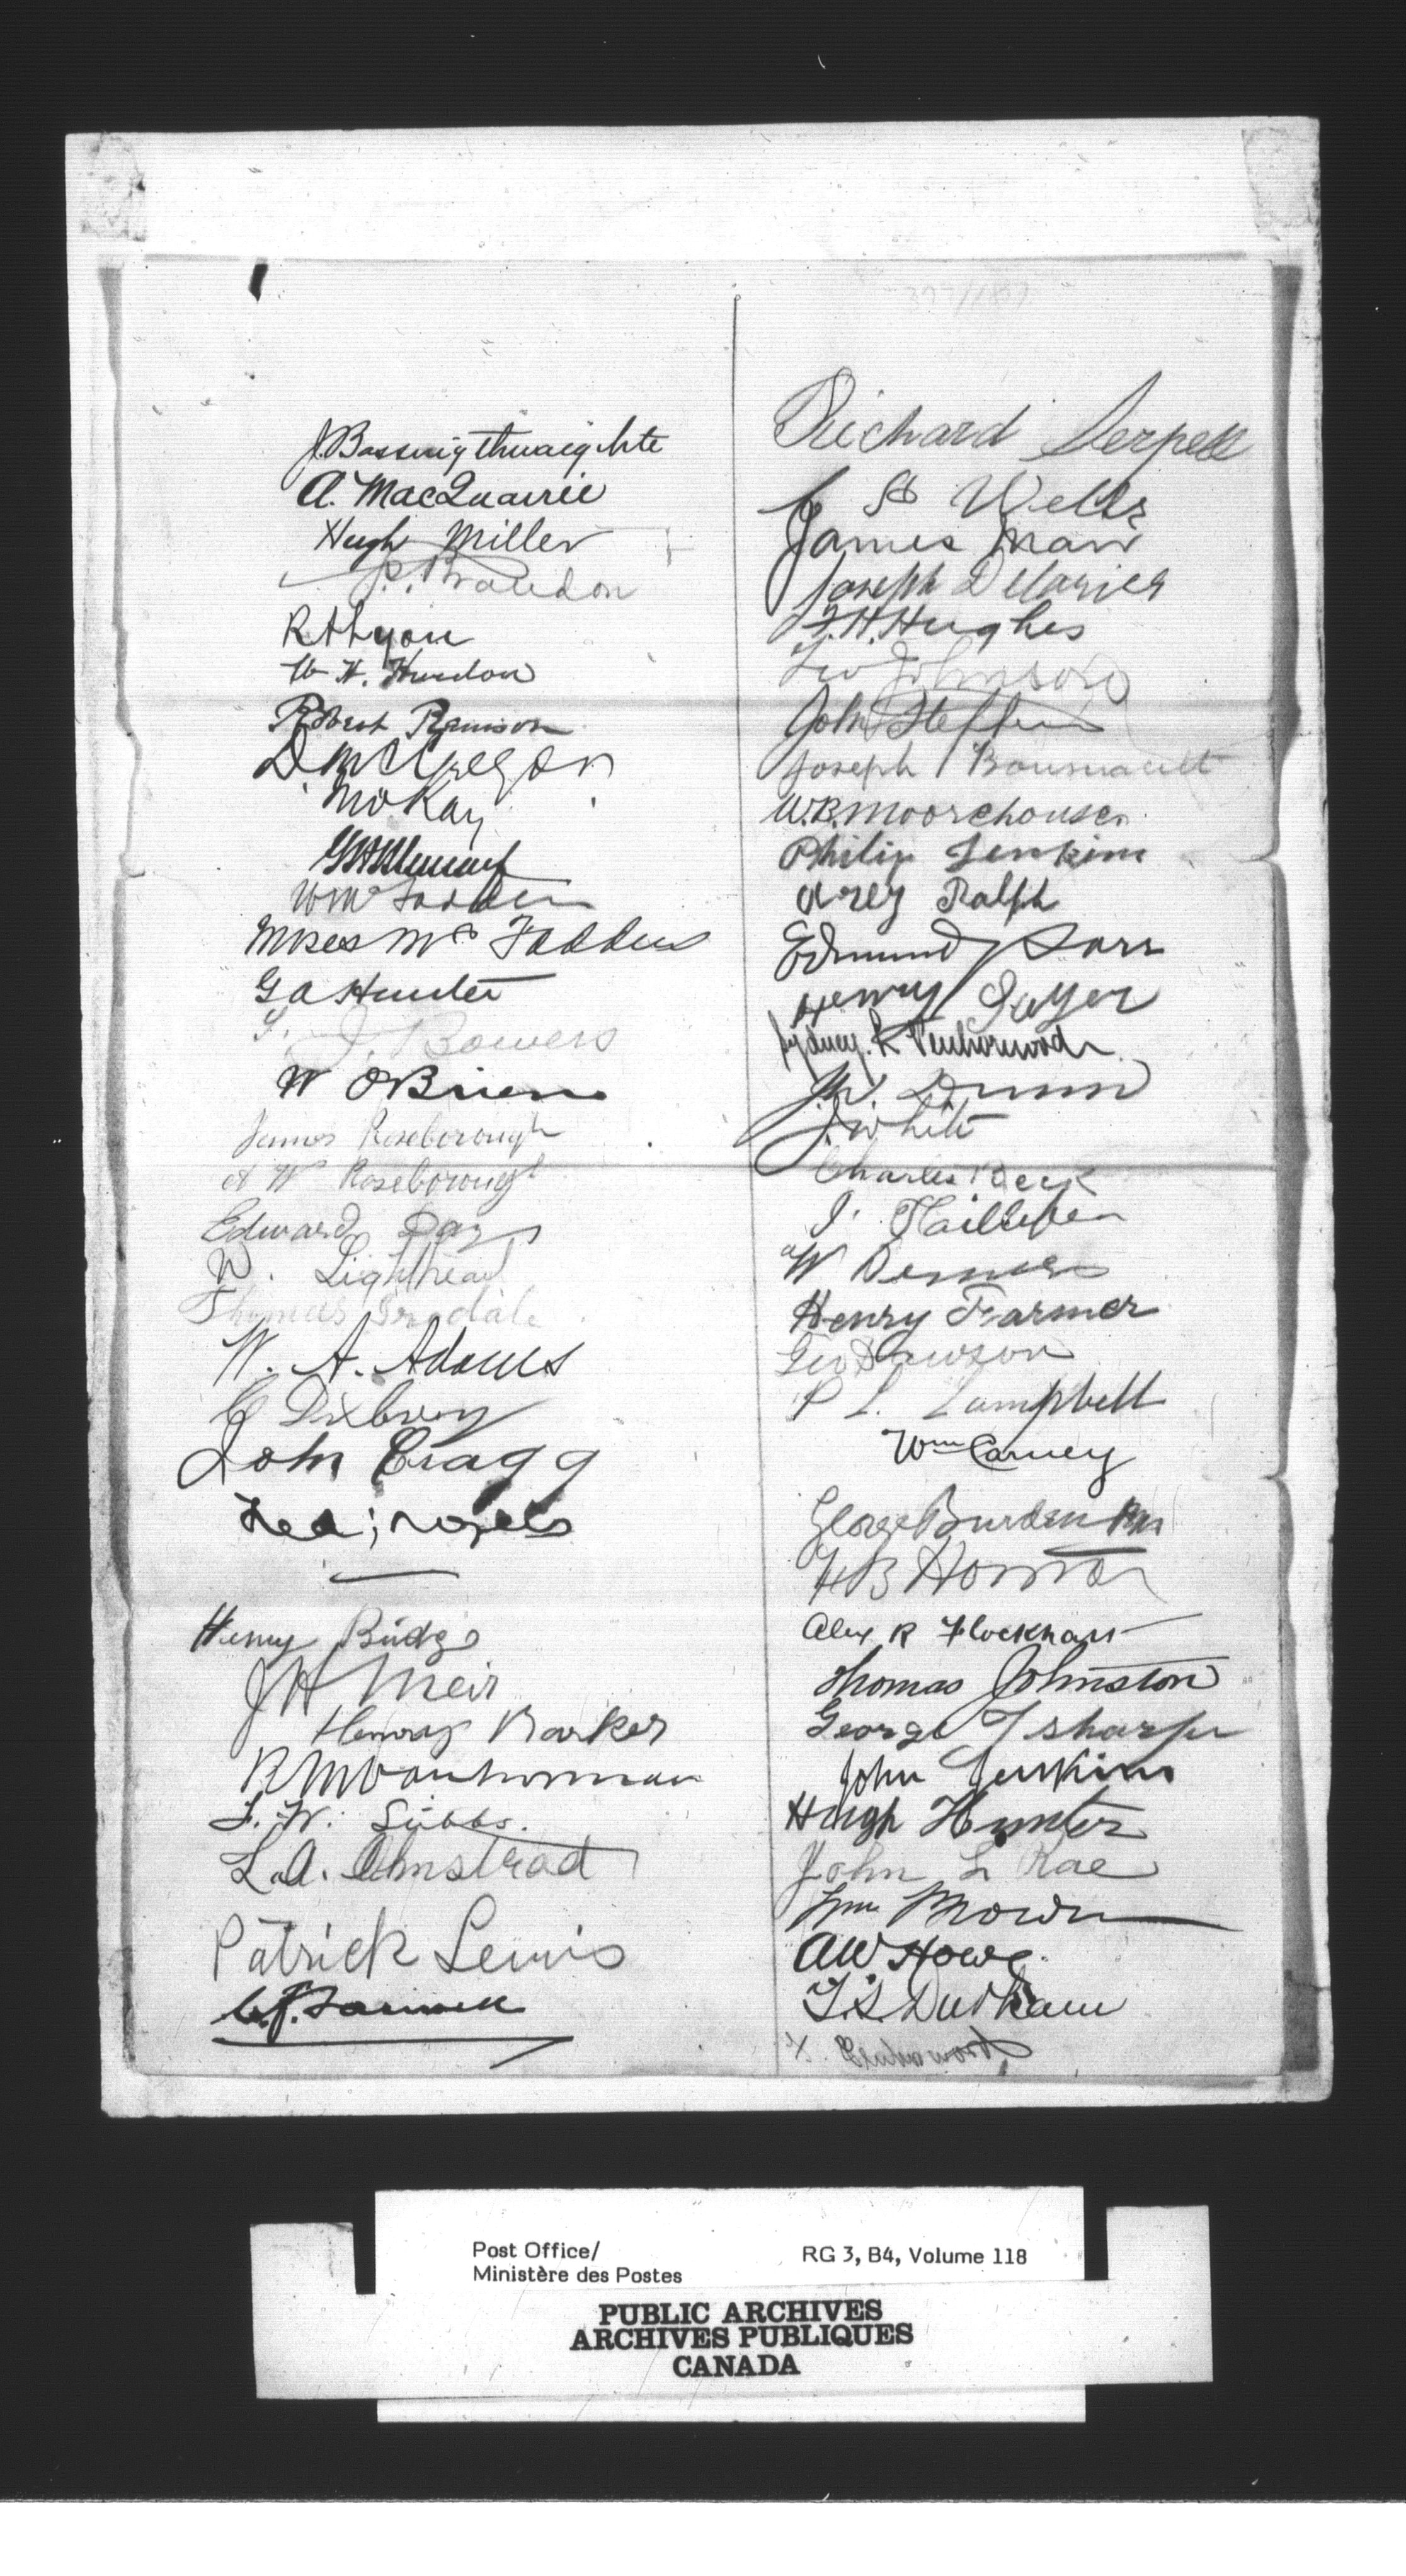 J Bassingthwaighte
A. MacQuarrie
Hugh Miller
P. Brandon
R A Lyon
W H. Hurdon
Robert
D McGregor
McKay
Wm Fadden
Moses Mc Fadden
G A Hunter
J. Bowers
W OBrien
James Roseborough
A W Roseborough
Edward Day
W. Lighthead
Thomas Irsdale
W. A. Adams
C Dixbury
John Cragg
Henry Budge
J H Meir
Henray Barker
R M Vanhorman
F. W. Subbs.
L. A. Olmstrad
Patrick Lewis
Richard Serpell
Wells
James Marr
Joseph
F. H. Hughes
Geo Johnson
John Steffins
Joseph
W. B. Moorehouse
Philip Jenkins
Arey Ralph
Edmund
Henry Guyer
Sydney. R
J. W. Dunn
J. White
Charles Beck
J.
W
Henry Farmer
Geo Lawson
P L. Campbell
Wm Carney
George Burden PM
Alex R Flockhart
Thomas Johnston
George T Sharpe
John Jenkins
Hugh Hunter
John L Rae
Wm Brown
A W Howe
T. S. Durham
Post Office/
Ministère des Postes
RG 3, B4, Volume 118
PUBLIC ARCHIVES
ARCHIVES PUBLIQUES
CANADA